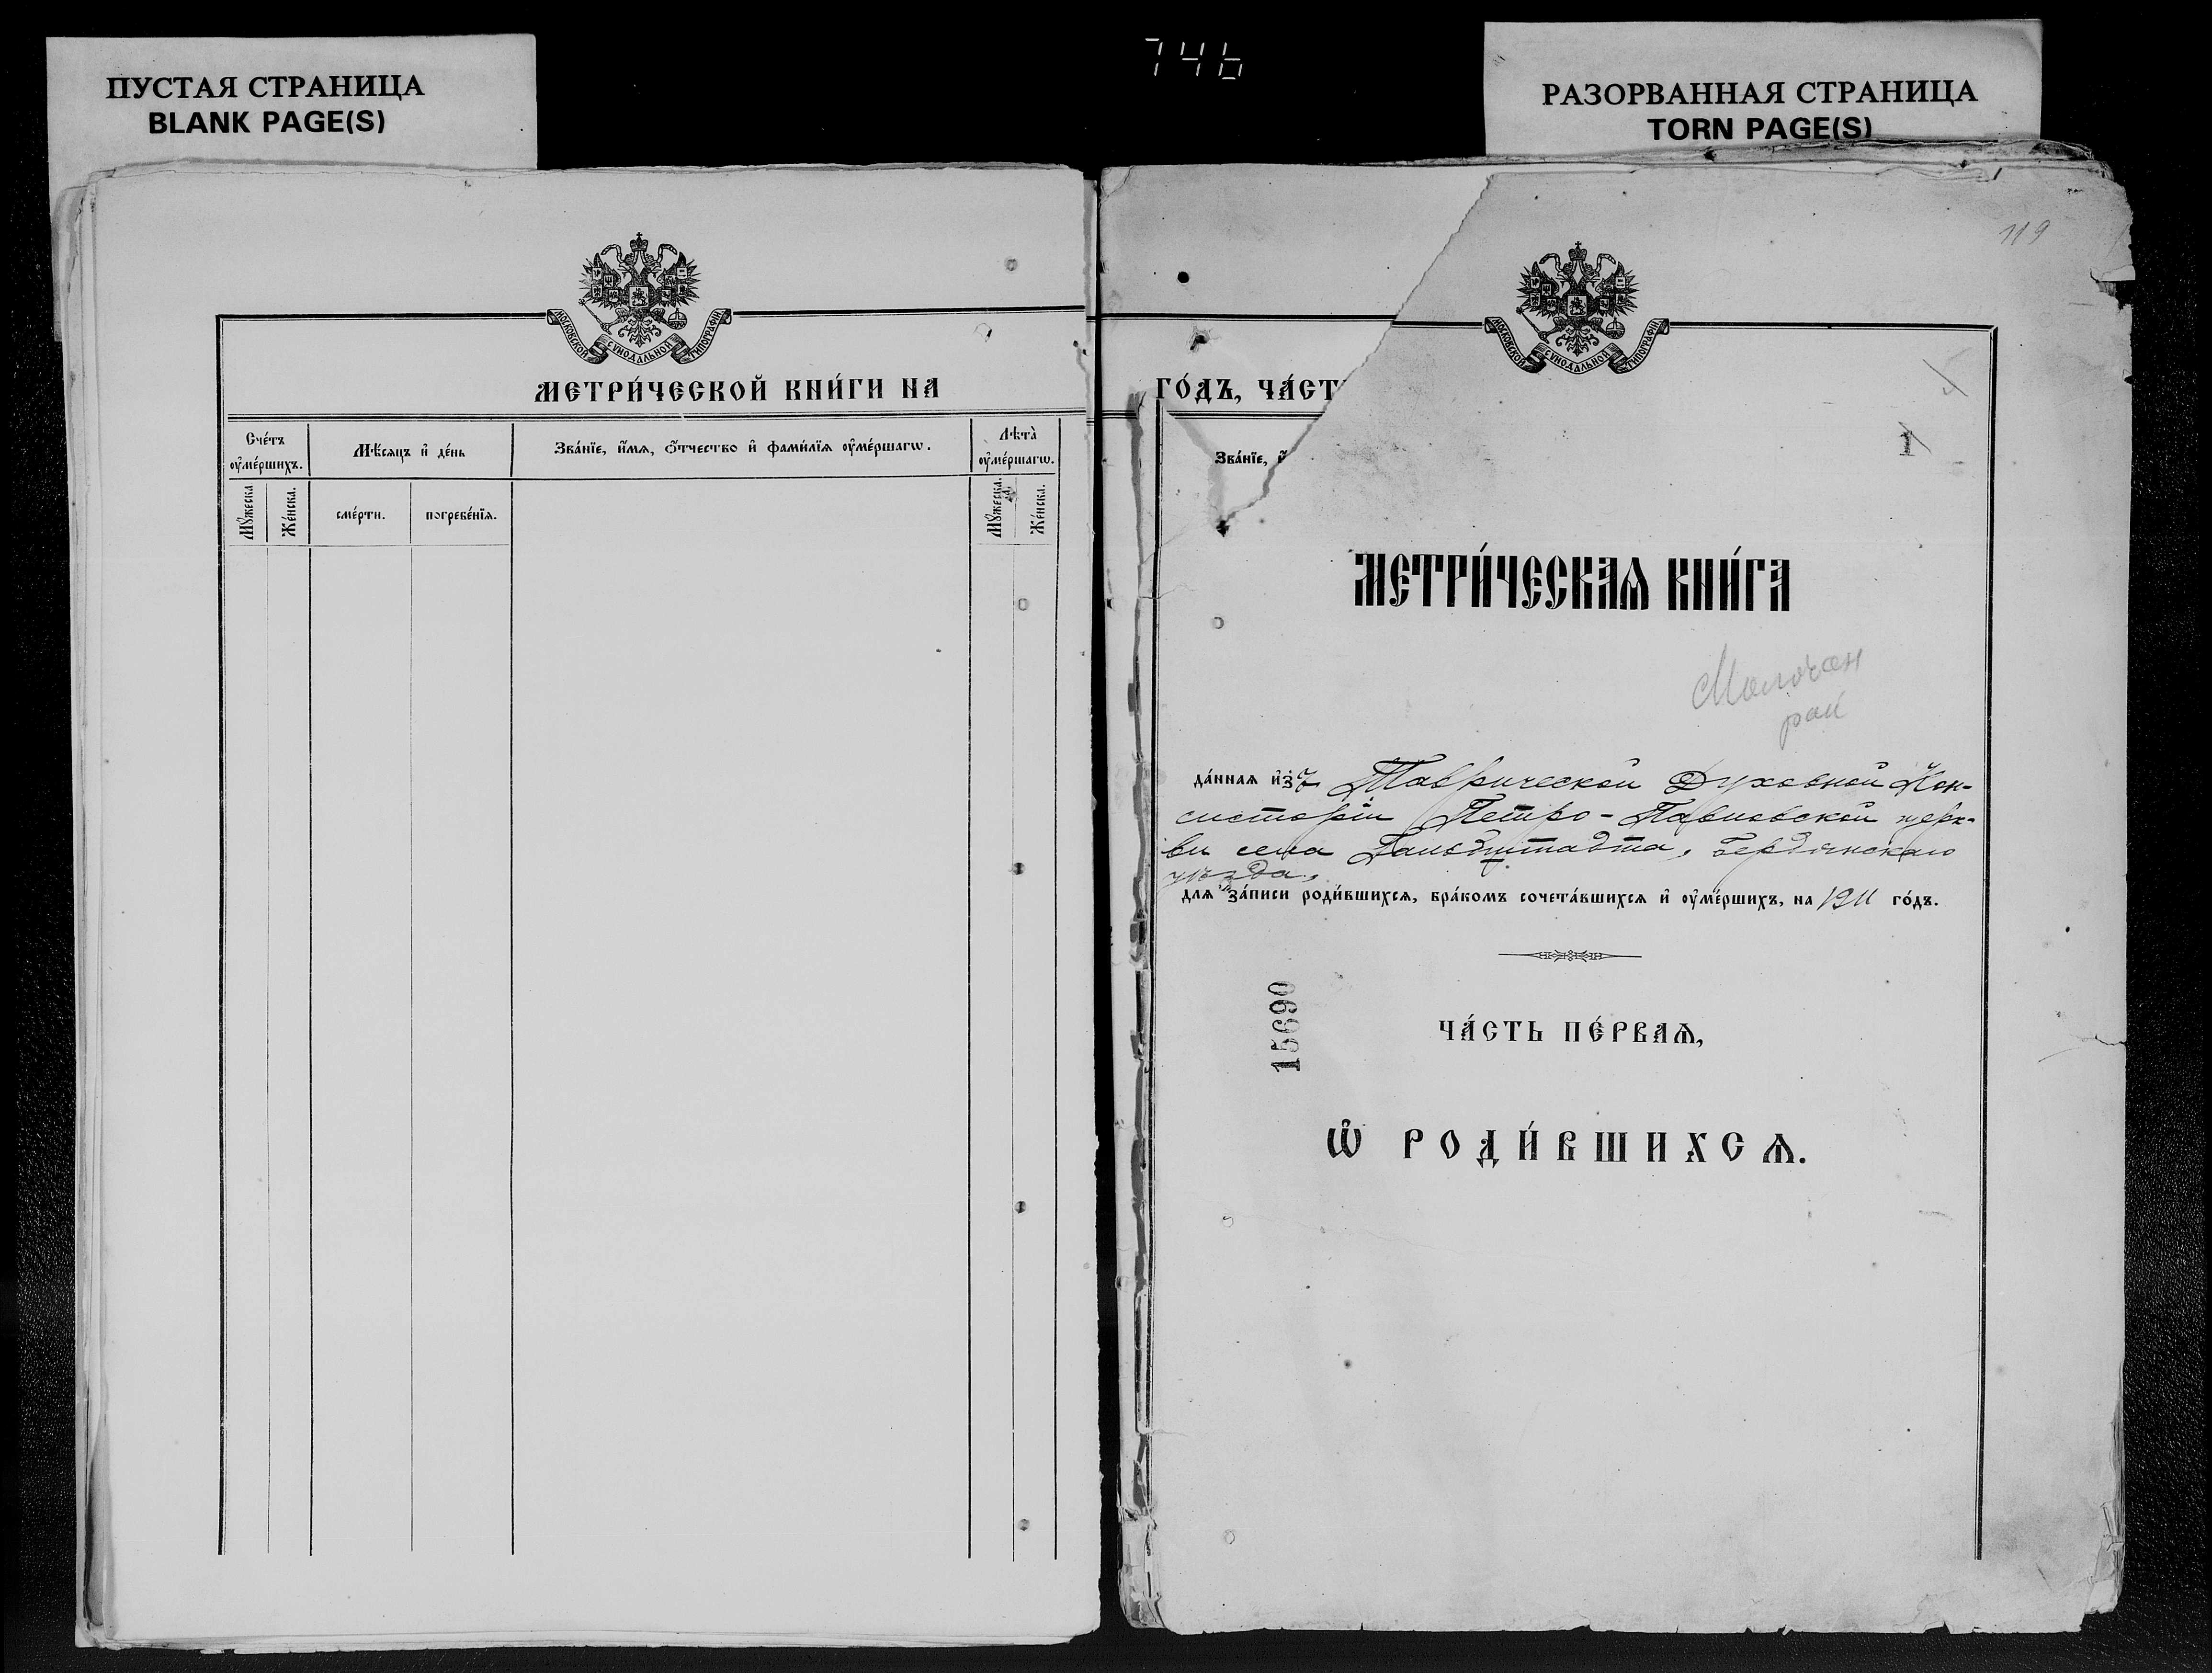 ПУСТАЯ СТРАНИЦА
BLANK PAGE(S)
746
РАЗОРВАННАЯ СТРАНИЦА
TORN PAGE(S)
МОСКОВСКОЙ СѴНОДАЛЬНОЙ ТИПОГРАФІИ
МЕТРИ́ЧЕСКОЙ КНИ́ГИ НА
Сче́тъ ᲂу҆ме́ршихъ.
Мѣ́сяцъ и҆ де́нь
Зва́нїе, и҆́мѧ, ѻ҆́тчество и҆ фами́лїѧ ᲂу҆ме́ршагѡ.
Лѣ́та ᲂу҆ме́ршагѡ.
Мꙋ́жеска.
Же́нска.
сме́рти.
погребе́нїѧ.
Мꙋ́жеска.
Же́нска.
119
МОСКОВСКОЙ СѴНОДАЛЬНОЙ ТИПОГРАФІИ
ГО́ДЪ, ЧА́СТ
Зва́нїе, и҆
1
МЕТРИ́ЧЕСКАѦ КНИ́ГА
Молочан
рай
да́ннаѧ и҆зъ Таврической Духовной Кон-
систоріи Петро-Павловской церк-
ви села Гальбштадта, Бердянскаго
уѣзда,
длѧ за́писи роди́вшихсѧ, бра́комъ сочета́вшихсѧ и҆ ᲂу҆ме́ршихъ, на 1911 го́дъ.
15690
ЧА́СТЬ ПЕ́РВАѦ,
Ѽ РОДИ́ВШИХСѦ.